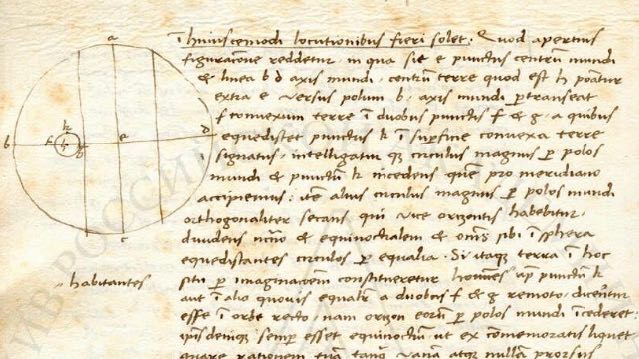 a
b
k
f
h
g
e
d
c
ī huiuscemodi locutionibus fieri solet: Quod apertius
figuratione reddetur, in qua sit e punctus centrum mundi
& linea b d axis mundi, centrum terre quod est h ponatur
extra e versus polum b, axis mundi ptranseat
f convexum terre ī duobus punctis f & g, a quibus
equedistet punctus k ī supficie convexa terre
signatus, intelligatur qз circulus magnus p polos
mundi & punctum k incedens quem pro meridiano
accipiemus: itē alius circulus magnus p polos mundi
orthogonaliter secans qui vice orizontis habebitur
dividens & equinoctialem & oēs sibi ī sphera
equedistantes circulos p equalia. Si itaqз terra ī hoc
situ p imaginationem constitueretur punctum k
"habitantes
aut ī alio quovis equalit a duobus f & g remoto, dicentur
esse ī orbe recto, nam orizon eorū p polos mundi īcederet:
ipīs deniqз semper esset equinoctiū ut ex comemoratis liquet
quare rationem tuā tanqꝫ vana atqз nullam prorsus
ИВ РОССИ